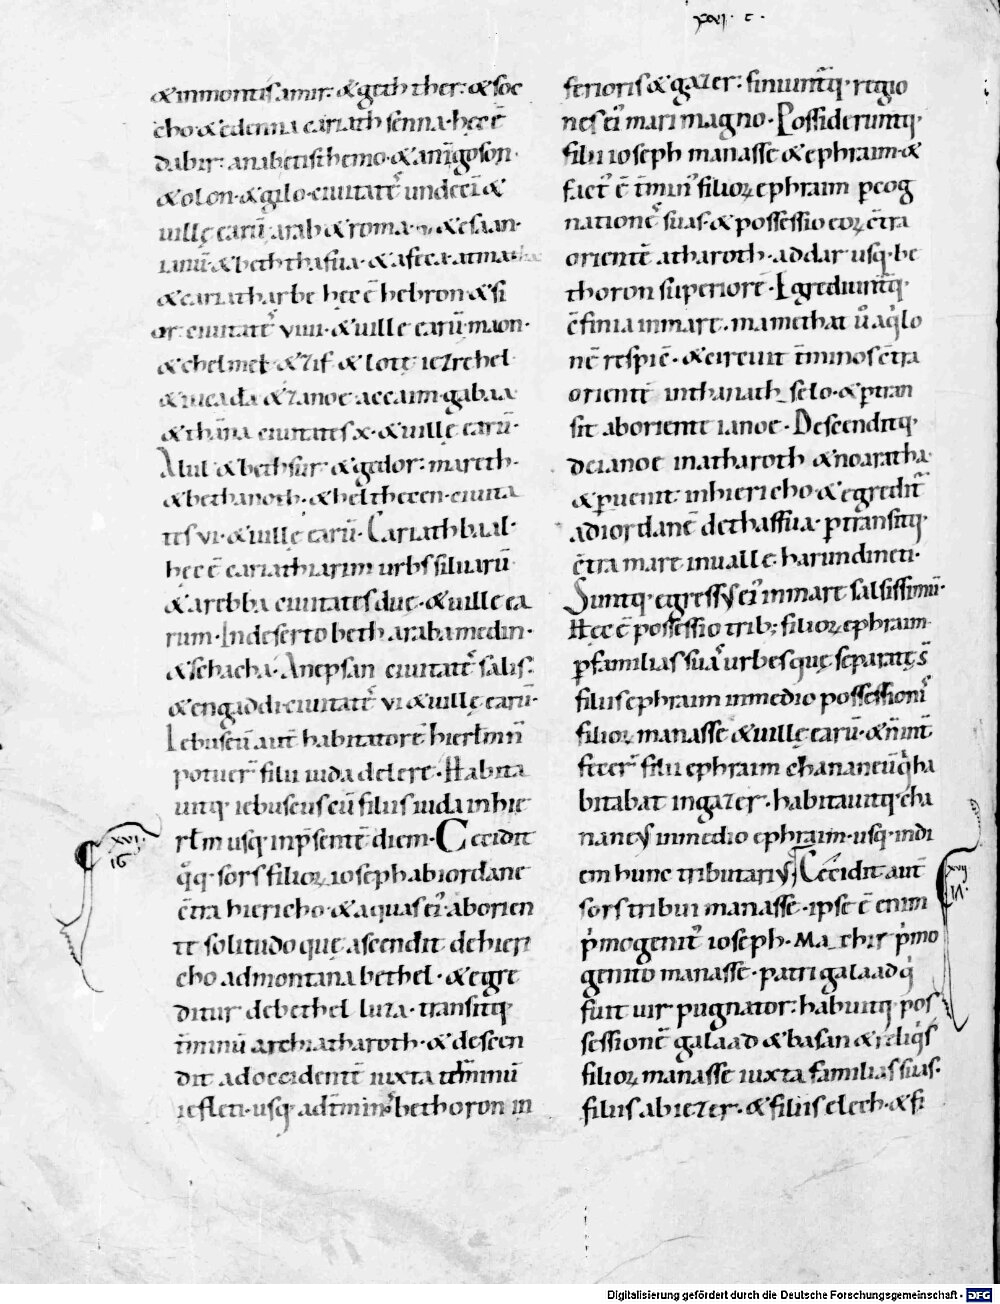 xvi · c ·
& inmontis amir· & geth ther· & soc
cho & edenna cariath senna· hęc ē
dabir· anab & istihemo· & anī goson·
& olon· & gilo· ciuitateˢ undecī &
uillę earū arab & roma· & esaan·
ianū & beth thafua· & afeca· atmatha
& cariatharbe hęc ē hebron & si
or· ciuitateˢ viiii· & uille earū maon·
& chelmel & zif & lotę iezrehel
& iucada & zanoe accaim· gabaa
& thāna ciuitates x· & uillę earū·
Alul & bethsur· & gedor· mareth·
& bethanoth· & heltheccen· ciuita
tes vi· & uillę earū· Cariathbaal·
hęc ē cariathiarim urbs siluarū
& arebba ciuitates duę· & uille ea
rum· Indeserto beth araba medin·
& sehacha· Anepsan ciuitateˢ salis·
& engaddi ciuitateˢ vi & uillę earū·
Iebuseū aut̄ habitatorē hierł̄m ñ
potuer̄ filii iuda delere· Habita
uitq; iebuseus cū filiis iuda in hie
rł̄m usq; inp̄sentē diem· Cecidit
q̊q; sors filioꝝ ioseph ab iordane
c̄tra hiericho· & aquas ei'· aborien
te solitudo quę ascendit de hieri
cho ad montana bethel· & egre
ditur de bethel luza· transitq;
t̄minū archiatharoth· & descen
dit ad occidentē iuxta t̄minū
iefleti· usq; ad t̄minoˢ bethoron in
ferioris & gazer· finiunt̄q; regio
nes ei' mari magno· Possiderunt̄q;
filii ioseph manasse & ephraim· &
fact' ē t̄min' filioꝝ ephraim ꝑ cog
nationeˢ suas· & possessio eoꝝ c̄tra
orientē atharoth· addar usq; be
thoron superiorē· Egrediunt̄q;
c̄finia in mare· mamethat ū aq̊lo
nē respic̄· & circuit t̄minos c̄tra
orientē inthanath selo· & ꝑtran
sit ab oriente ianoe· Descenditq;
de ianoe in atharoth & noaratha·
& ꝑuenit in hiericho & egredit̄
ad iordanē de thaffua· ꝑtransitq;
c̄tra mare in ualle· harundineti·
Suntq; egressꝰ ei' in mare salsissimū·
Hęc ē possessio trib; filioꝝ ephraim
ꝑ familias suaˢ urbesque separatęs̄
filiis ephraim in medio possessioniˢ
filioꝝ manasse & uillę earū· & n̄int̄
fecer̄ filii ephraim chananeū q̇ ha
bitabat in gazer· habitauitq; cha
naneꝰ in medio ephraim· usq; in di
em hunc tributariꝰ· Cecidit aut̄
sors tribui manasse· ipse ē enim
p̄mogenit' ioseph· Machir p̄mo
genito manasse· patri galaad q̇
fuit uir pugnator· habuitq; pos
sessionē galaad & basan & reliq̇s
filioꝝ manasse iuxta familias suas·
filiis abiezer· & filiis elech· & fi
xvi·
16
xvii
17·
Digitalisierung gefördert durch die Deutsche Forschungsgemeinschaft - DFG